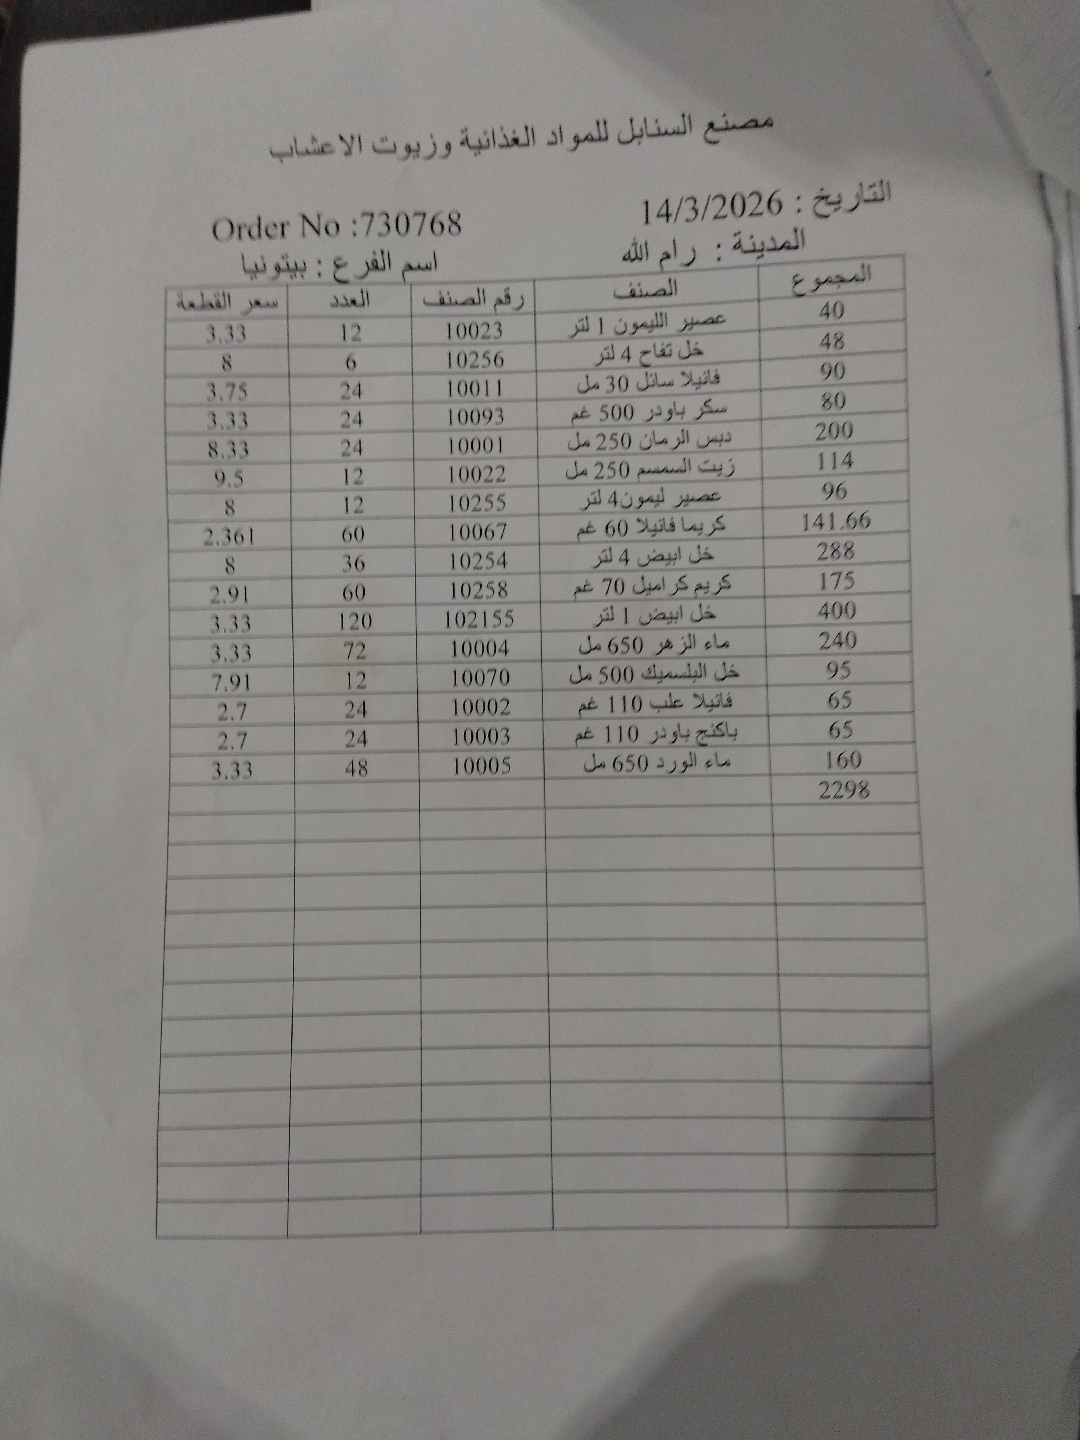 مصنع السنابل للمواد الغذائية وزيوت الاعشاب
التاريخ : 14/3/2026 Order No :730768
المدينة : رام الله اسم الفرع : بيتونيا
المجموع الصنف رقم الصنف العدد سعر القطعة
40 عصير الليمون 1 لتر 10023 12 3.33
48 خل تفاح 4 لتر 10256 6 8
90 فانيلا سائل 30 مل 10011 24 3.75
80 سكر باودر 500 غم 10093 24 3.33
200 دبس الرمان 250 مل 10001 24 8.33
114 زيت السمسم 250 مل 10022 12 9.5
96 عصير ليمون4 لتر 10255 12 8
141.66 كريما فانيلا 60 غم 10067 60 2.361
288 خل ابيض 4 لتر 10254 36 8
175 كريم كراميل 70 غم 10258 60 2.91
400 خل ابيض 1 لتر 102155 120 3.33
240 ماء الزهر 650 مل 10004 72 3.33
95 خل البلسميك 500 مل 10070 12 7.91
65 فانيلا علب 110 غم 10002 24 2.7
65 باكنج باودر 110 غم 10003 24 2.7
160 ماء الورد 650 مل 10005 48 3.33
2298